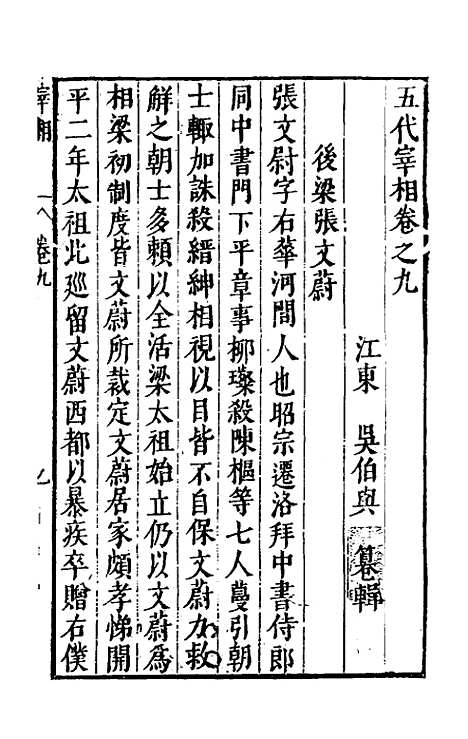 五代宰相卷之九
江東 吳伯與 纂輯
後梁張文蔚
張文尉字右華河間人也昭宗遷洛拜中書侍郎
同中書門下平章事柳璨殺陳樞等七人蔓引朝
士輒加誅殺縉紳相視以目皆不自保文蔚力救
解之朝士多賴以全活梁太祖始立仍以文蔚爲
相梁初制度皆文蔚所裁定文蔚居家頗孝悌開
平二年太祖北廵留文蔚西都以暴疾卒贈右僕
宰相 卷九